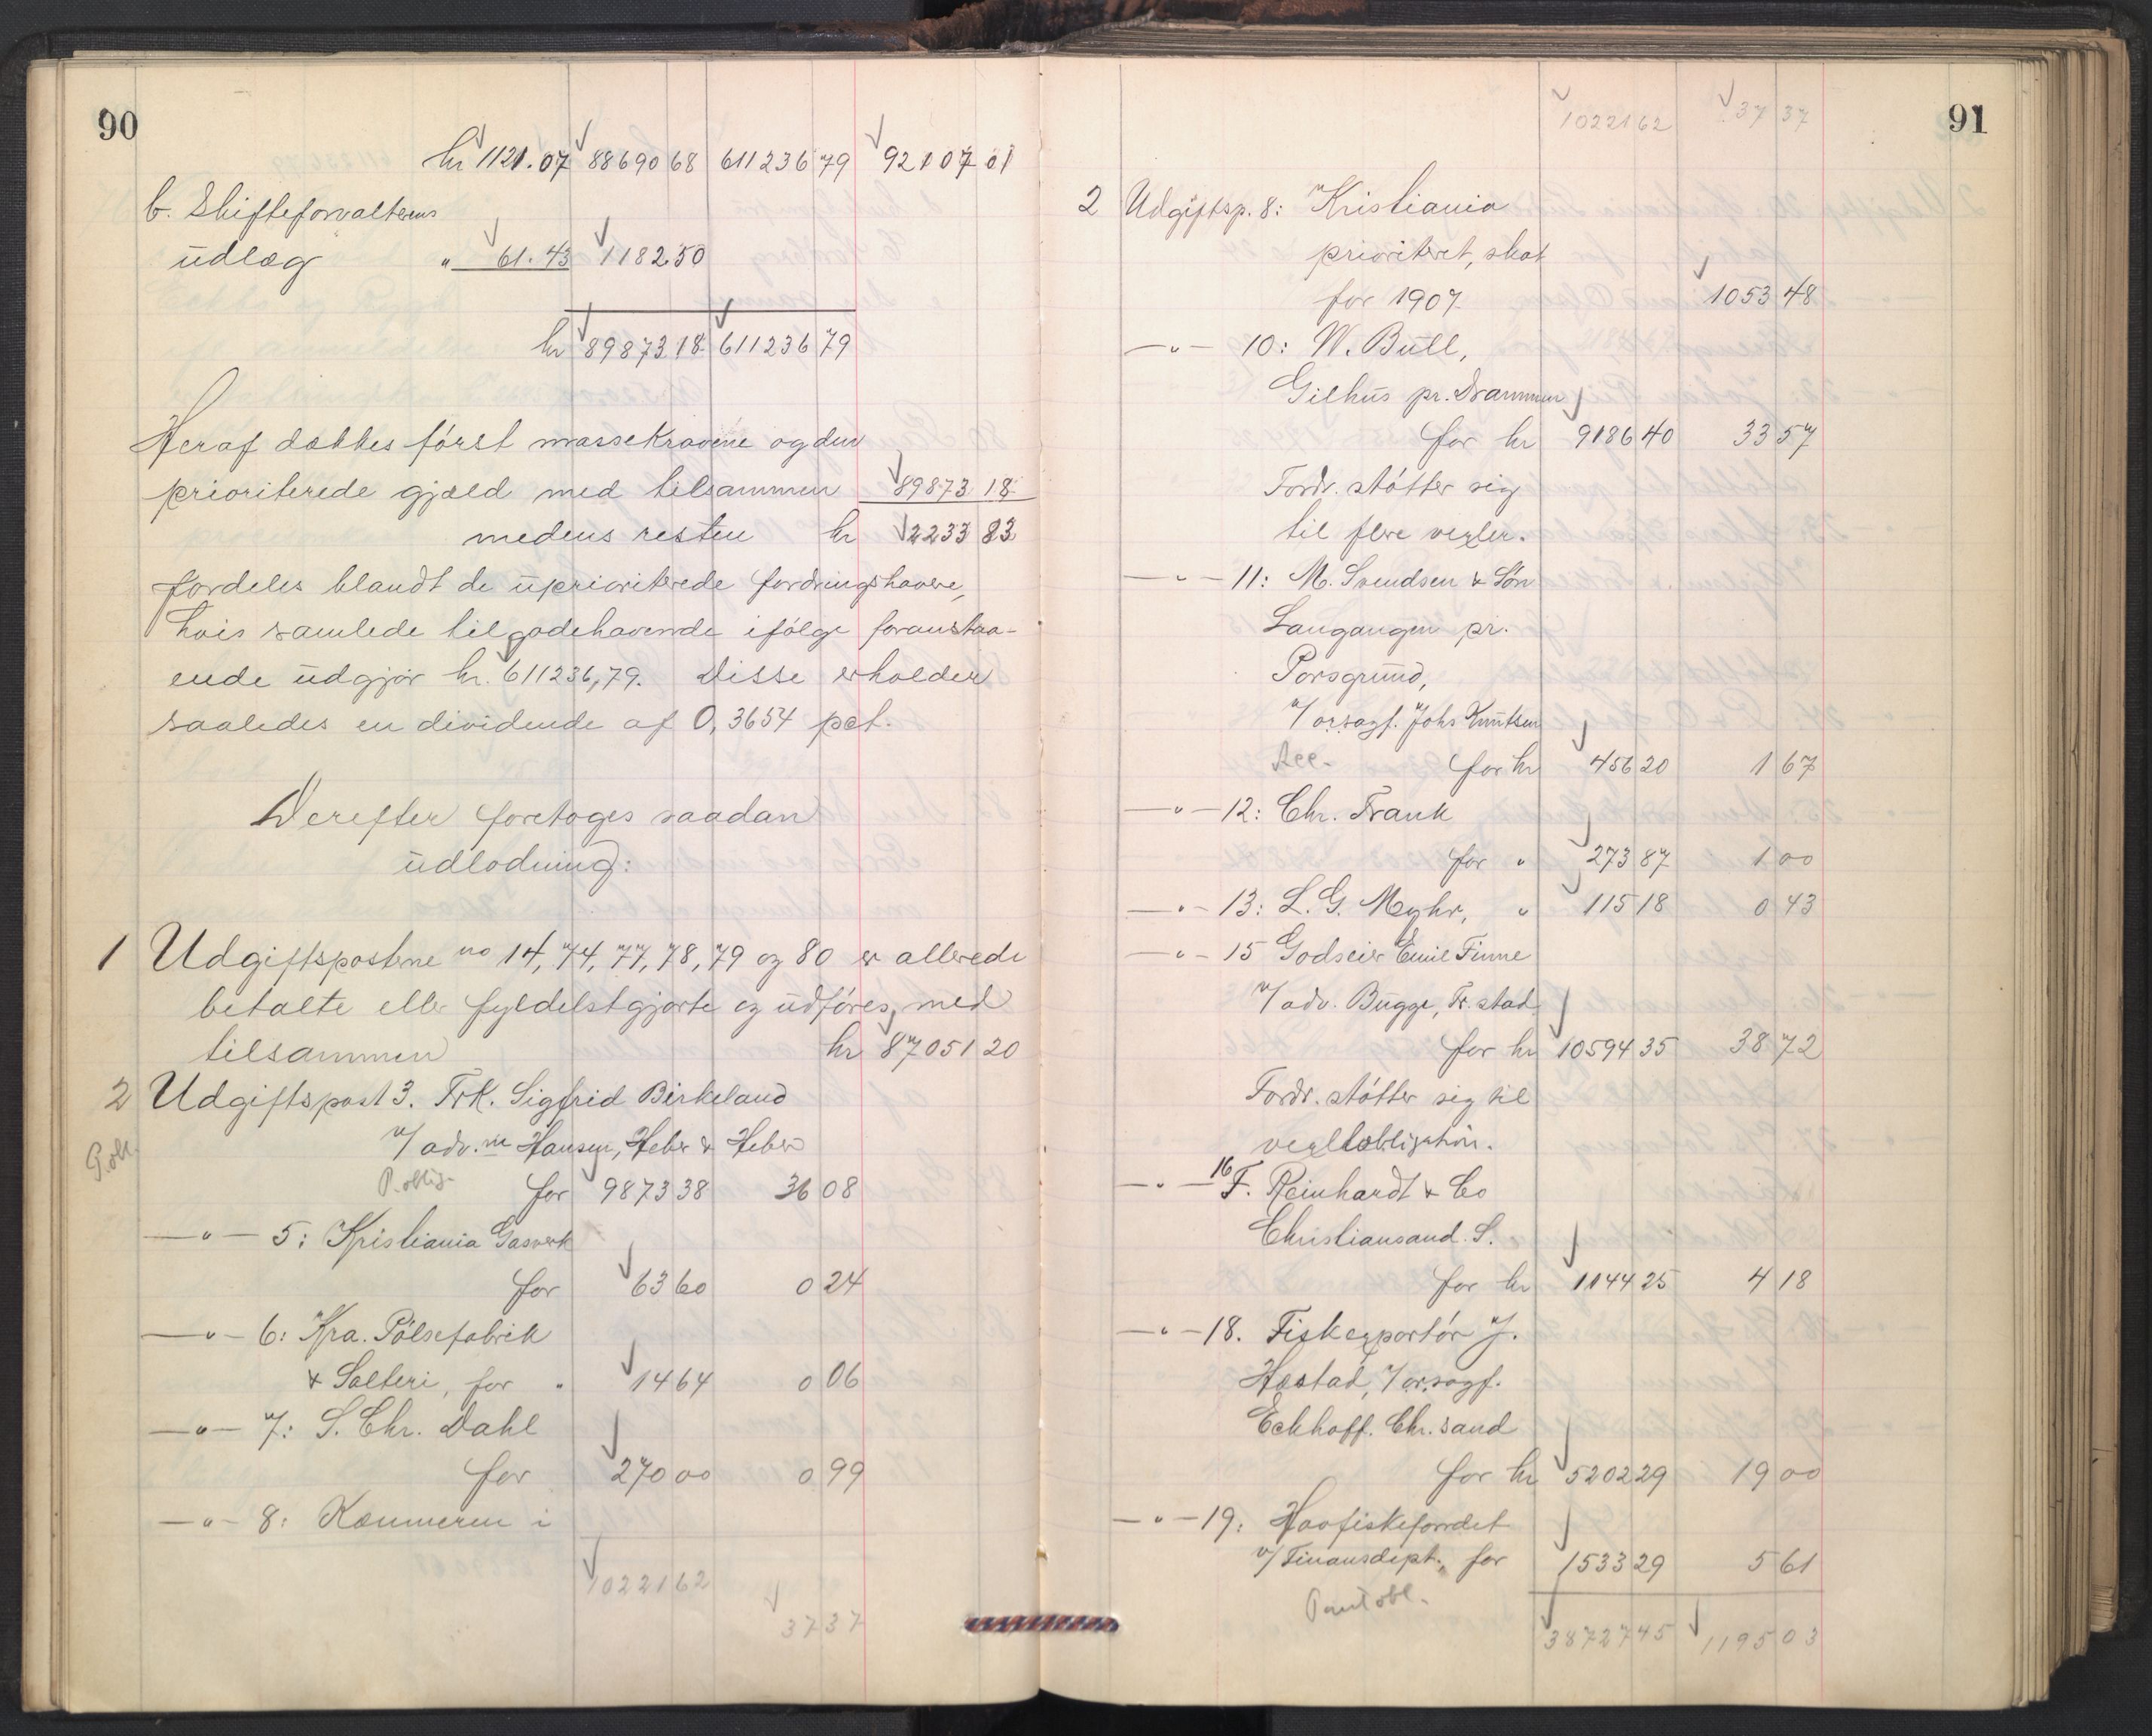 90
kr 1121.07 88690 68 611236 79 92107 01
b. Skifteforvalterens
udlæg " 61.43 1182.50
kr 89873.18 611236 79
Heraf dækkes først massekravene og den
prioriterede gjæld med tilsammen 89873 18
medens resten kr 2233 83
fordeles blandt de uprioriterede fordringshavere,
hvis samlede tilgodehavende ifølge foranstaa-
ende udgjør kr. 611236,79. Disse erholder
saaledes en dividende af 0,3654 pct.
Derefter foretoges saadan
udlodning:
1 Udgiftsposterne no 14, 74, 77, 78, 79 og 80 er allerede
betalte eller fyldestgjorte og udføres med
tilsammen kr 87051 20
2 Udgiftspost 3. Frk. Sigfrid Birkeland
v/ adv.ne Hansen, Heber & Heber
P. oblig. for 9873 38 36 08
—"— 5: Kristiania Gasverk
for 63 60 0 24
—"— 6: Kra. Pølsefabrik
& Salteri, for " 14 64 0 06
—"— 7: S. Chr. Dahl
for 270 00 0 99
—"— 8: Kæmneren i
10221 62
37 37
91
10221 62 37 37
2 Udgiftsp. 8: Kristiania
prioritert, skat
for 1907 1053 48
—"— 10: W. Bull,
Gilhus pr. Drammen
for kr 9186 40 33 57
Fordr. støtter sig
til flere vexler.
—"— 11: M. Svendsen & Søn
Langangen pr.
Porsgrund,
v/ o.r.sagf. Johs Knutsen
Acc. for kr 456 20 1 67
—"— 12: Chr. Frank
for " 273 87 1 00
—"— 13: L. G. Myhr, " 115 18 0 43
—"— 15 Godseier Emil Finne
v/ adv. Bugge, Fr.stad
for kr 10594 35 38 72
Fordr. støtter sig til
vexelobligation.
—"— 16 F. Reinhardt & Co
Christiansand. S.
for kr 1144 25 4 18
—"— 18. Fiskexportør J.
Hestad, v/ o.r.sagf.
Eckhoff. Chr.sand
for kr 5202 29 19 00
—"— 19: Havfiskefondet
v/ Finansdept., for 1533 29 5 61
Pantobl.
38727 45 1195 03